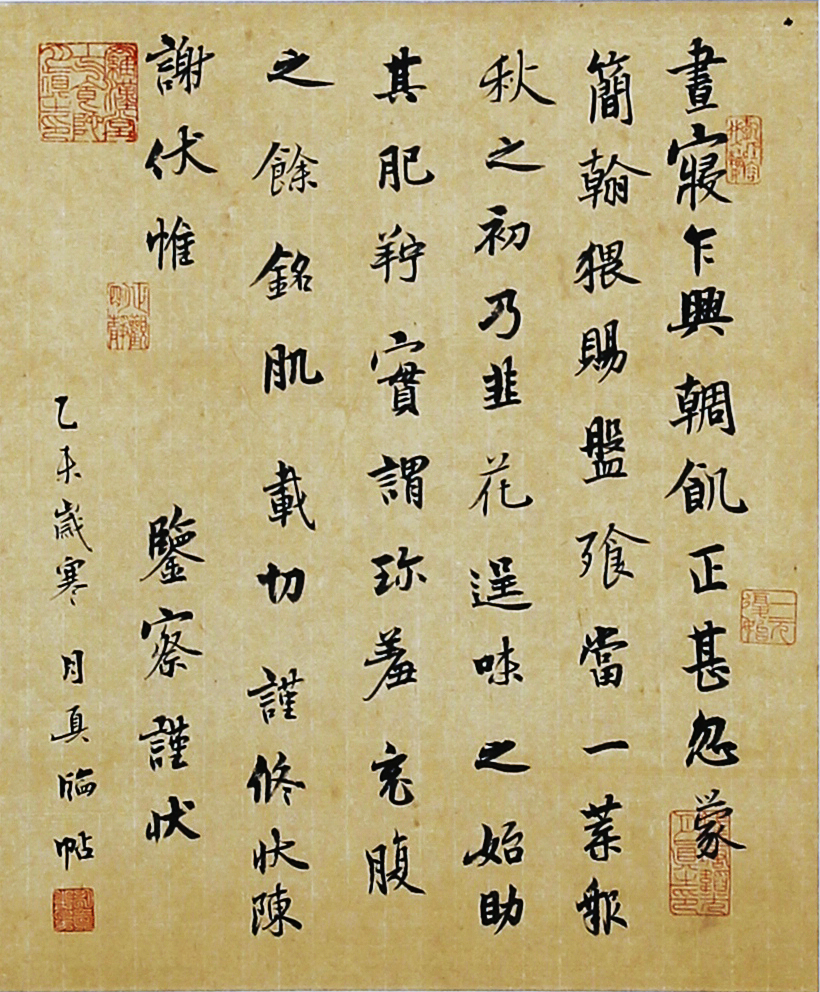 晝寢乍興輖飢正甚忽蒙
簡翰猥賜盤飧當一葉報
秋之初乃韭花逞味之始助
其肥羜實謂珎羞充腹
之餘銘肌載切謹脩狀陳
謝伏惟 鑒察謹狀
乙未歲寒月真臨帖